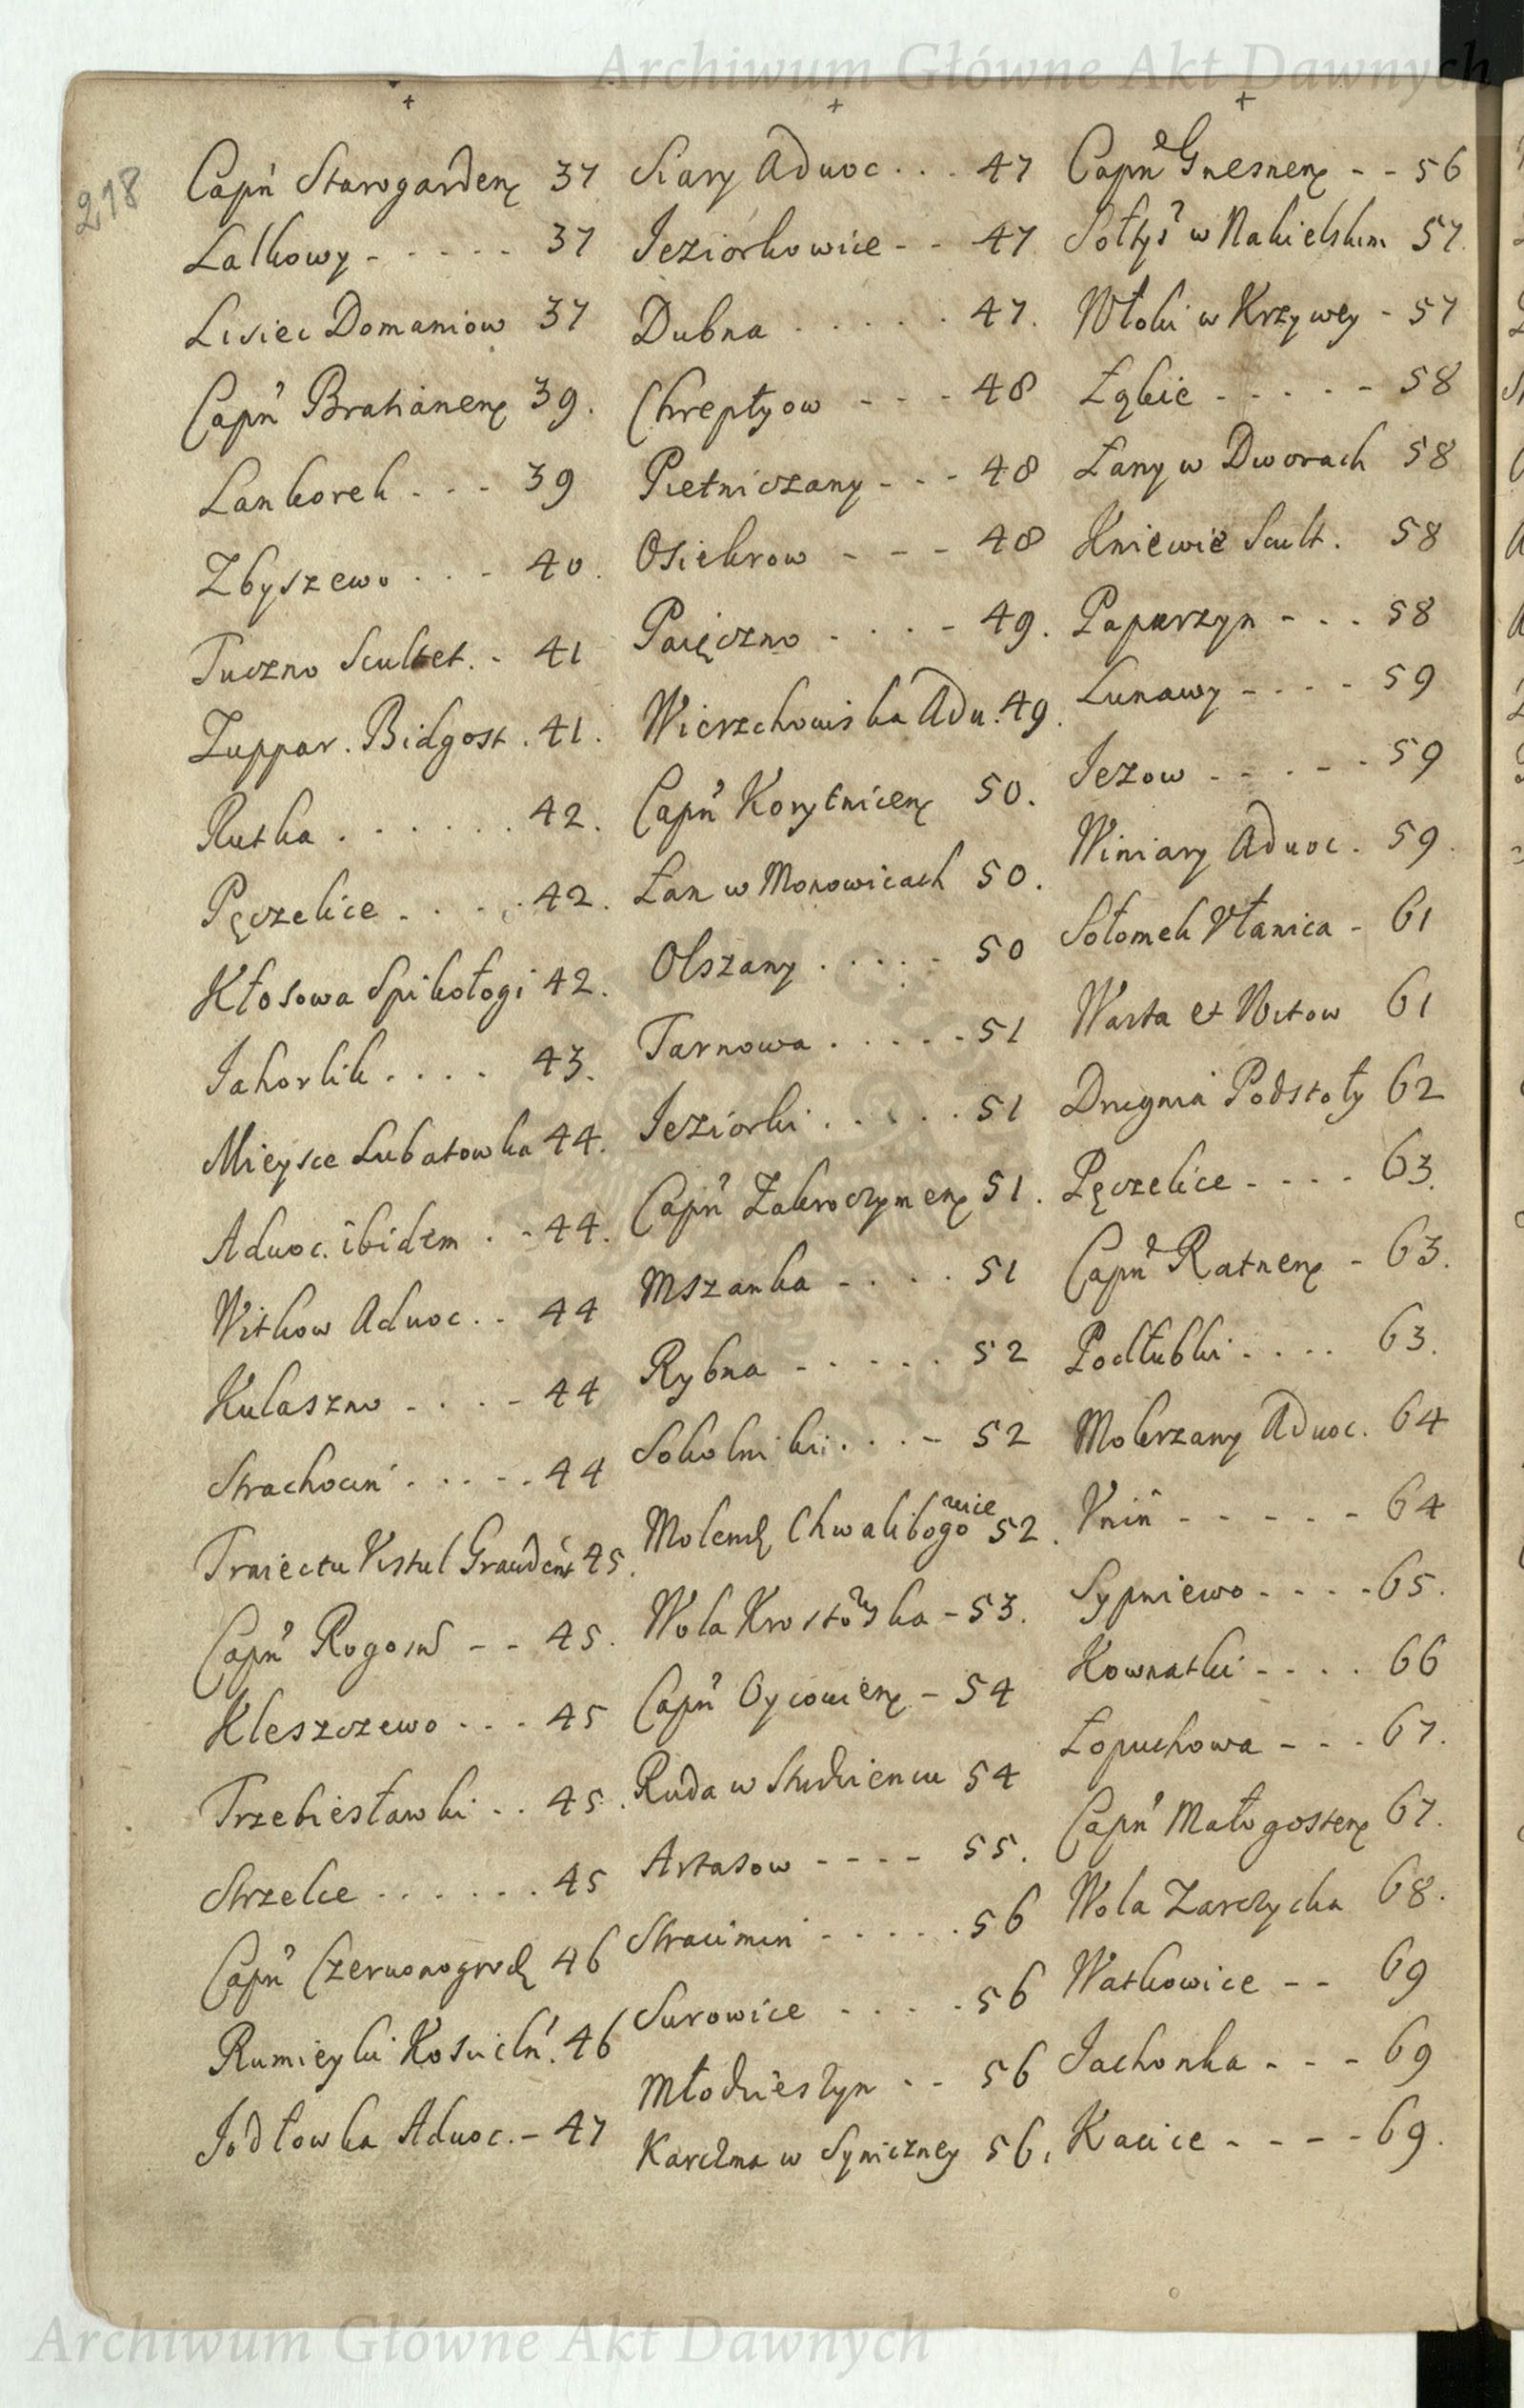 Archiwum Główne Akt Dawnych
218
Capn Starogarden 37
Lalkowy - - - - - 37
Lisiec Domaniow 37
Capn Bratianen 39.
Lankorek - - - 39
Zbyszewo . . - 40.
Tuczno Scultet. - 41
Zuppar. Bidgost. 41.
Rutka . . . . . . 42.
Pęczelice . . . . 42.
Kłosowa Spikołogi 42.
Jahorlik . . . . 43.
Mieysce Lubatowka 44.
Aduoc. ibidem . - 44.
Witkow Aduoc. . 44
Kulaszno . . . - 44
Strachocin . . . - - 44
Traiectu Vistul Graudent 45.
Capn Rogozn - - 45.
Kleszczewo . . . 45
Trzebiesławki . . 45.
Strzelce . . . . . . 45
Capn Czerwonogrod 46
Rumieyki Koscieln. 46
Jodłowka Aduoc. - 47
Siary Aduoc . . . 47
Jeziorkowice - - 47
Dubna . . . . . 47.
Chreptyow - - - 48
Pietniczany - - - 48
Osiekrow - - - 48
Paięczno . . . - 49.
Wierzchowiska Adu. 49.
Capn Korytnicen 50.
Łan w Monowicach 50.
Olszany . . . . - 50
Tarnowa . . . . - 51
Jeziorki . . . . . 51
Capn Zakroczymen 51.
Mszanka - . . . 51
Rybna - . . . . . 52
Sokolniki . . . - 52
Molend Chwalibogowice 52.
Wola Krostowska - 53.
Capn Oycowien - 54
Ruda w Studzieniu 54
Artasow - - - - 55.
Stracimin - . . . . 56
Surowice . . . . 56
Młodzieszyn - - 56
Karczma w Syniczney 56.
Capn Gnesnen - - 56
Sołtys w Nakielskim 57.
Włoki w Krzywey - 57
Łąkie - - - - - 58
Łany w Dworach 58
Kniewie Scult. 58
Paparzyn - - . 58
Lunawy - - - - 59
Jezow - - . - - 59
Winiary Aduoc. 59.
Sołomek Vłanica - 61
Warta et Witow 61
Drugnia Podstoły 62
Pęczelice - - - - 63.
Capn Ratnen - 63.
Podłubki - . . . 63.
Mokrzany Aduoc. 64
Vnin - - - - - 64
Sypniewo - - - - 65.
Kownatki - - . . 66
Łopuchowa - - . 67.
Capn Małogosten 67.
Wola Zarczycka 68.
Watkowice - - 69
Jachonka - - - 69
Kacice - - - - 69.
Archiwum Główne Akt Dawnych